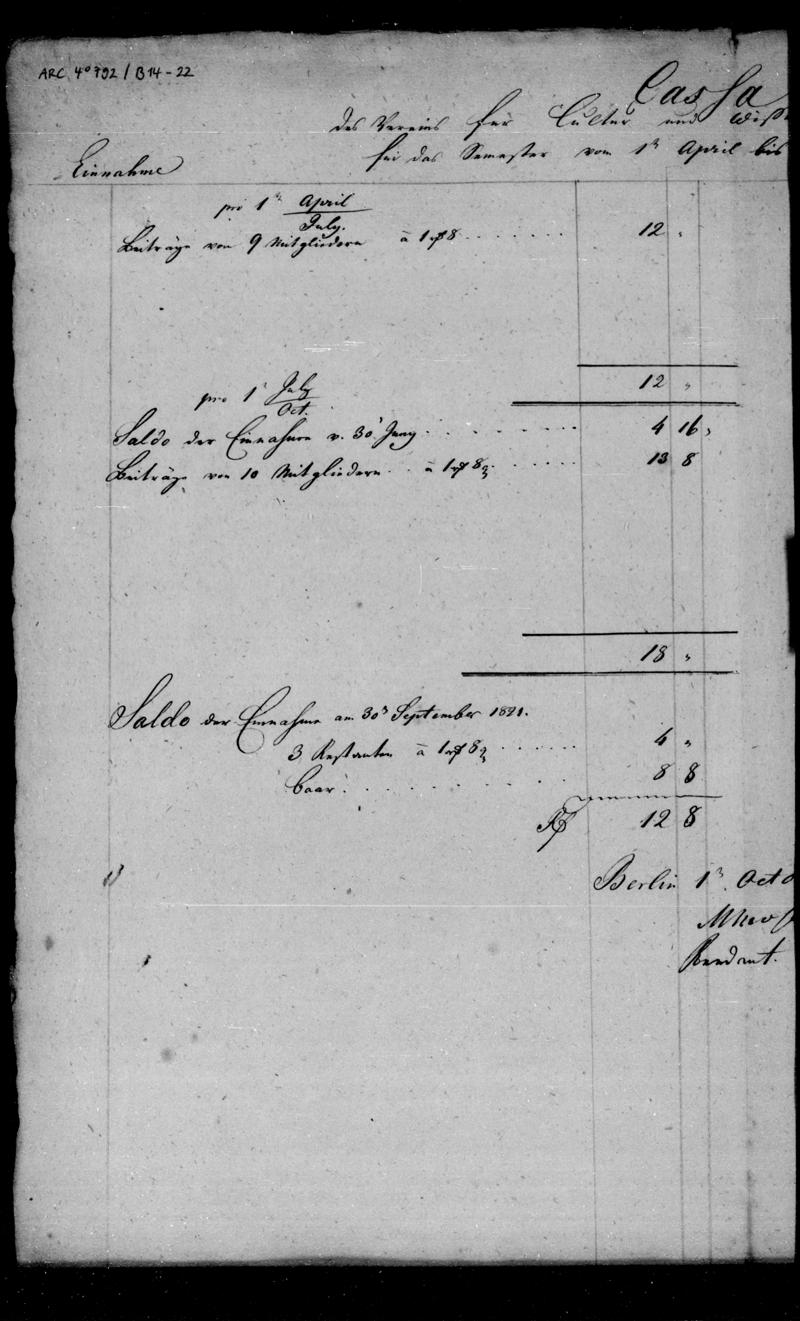 ARC 4° 792 / B14-22
Cassa
des Vereins für Cultur und Wiss
für das Semester vom 1n April bis
Einnahme
pro 1n April
July.
Beiträge von 9 Mitgliedern à 1 rt 8 . . . . . . . 12 "
12 "
pro 1n July
Oct.
Saldo der Einnahme v. 30n Juny . . . . . . . 4 16 "
Beiträge von 10 Mitgliedern . . à 1 rt 8 . . . . . . 13 8
18 "
Saldo der Einnahme am 30n September 1821.
3 Restanten à 1 rt 8 . . . . . . 4 "
baar . . . . . . . . . 8 8
12 8
Berlin 1n Octo
Rendant.